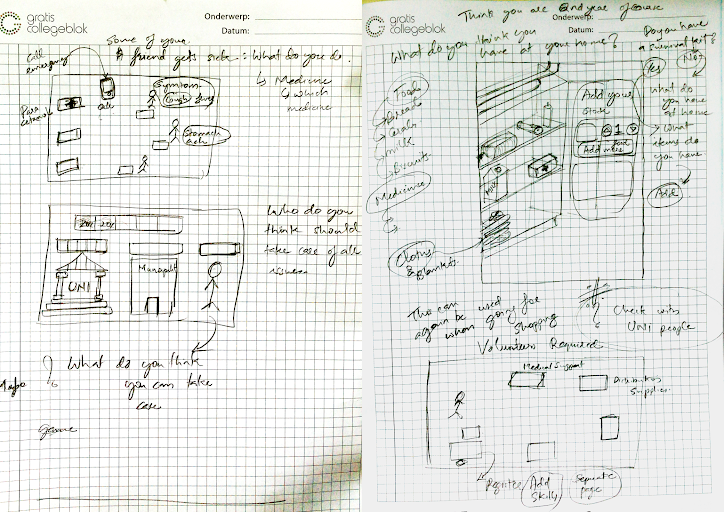 gratis
collegeblok
Onderwerp:
Datum:
Some of your
A friend gets sick : What do you do.
Call
emergency
↳ Medicine
↳ which
medicine
Symtoms
Cough
Stomach
Ache
UNI
Who do you
think should
take care of all
issues
? What do you think
you can take
care
game
gratis
collegeblok
Onderwerp:
Datum:
Think you are 2nd year of
What do you think you
have at your home?
Do you have
a survival kit?
Yes
No?
Food
Bread
Milk
Biscuits
Medicine
Clothes
& Blankets
Add your
1
Add more
What do
you have
at home
> What
items do
you have
Add
This can
again be used
when going for
shopping
? Check with
UNI people
Volunteers Required
Medical Support
Distribution
Supplies
Register
Add
Skills
Separate
page